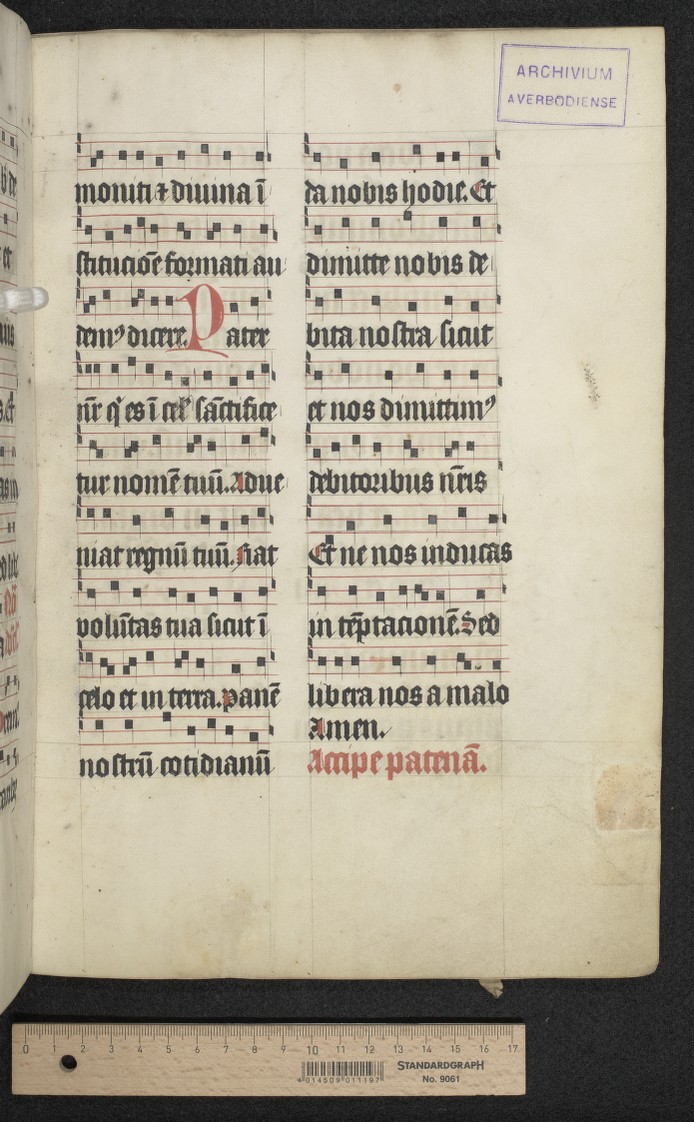 ARCHIVIUM
AVERBODIENSE
moniti ⁊ diuina ī
stitucioē formati au
demꝰ dicere. Pater
nr̄ q̇ es ī cel' sāctifice
tur nomē tuū. Adue
niat regnū tuū. Fiat
volūtas tua sicut ī
celo et in terra. panē
nostrū cotidianū
da nobis hodie. Et
dimitte nobis de
bita nostra sicut
et nos dimittimꝰ
debitoribus nr̄is
Et ne nos inducas
in tēptacionē. Sed
libera nos a malo
Amen.
Accipe patenā.
0 1 2 3 4 5 6 7 8 9 10 11 12 13 14 15 16 17
STANDARDGRAPH
No. 9061
4 014509 011197